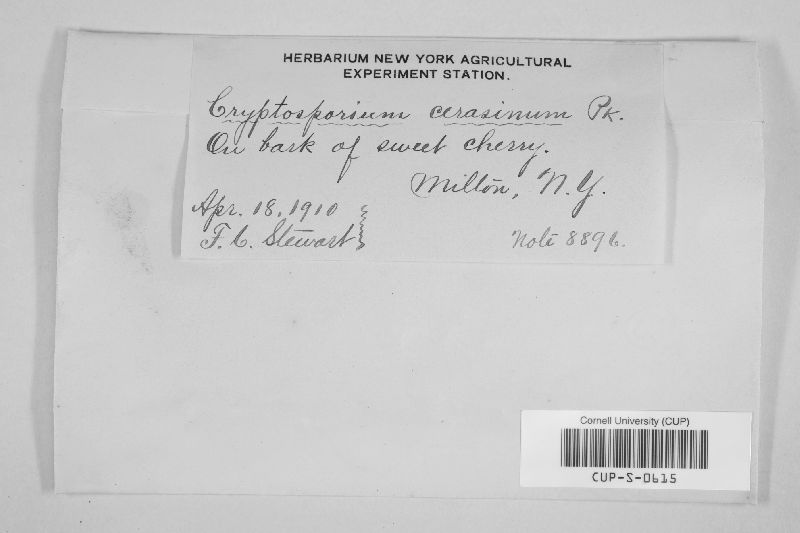 HERBARIUM NEW YORK AGRICULTURAL
EXPERIMENT STATION.
Cryptosporium cerasinum Pk.
On bark of sweet cherry.
Milton, N.Y.
Apr. 18, 1910
F. C. Stewart
Note 8896.
Cornell University (CUP)
CUP-S-0615